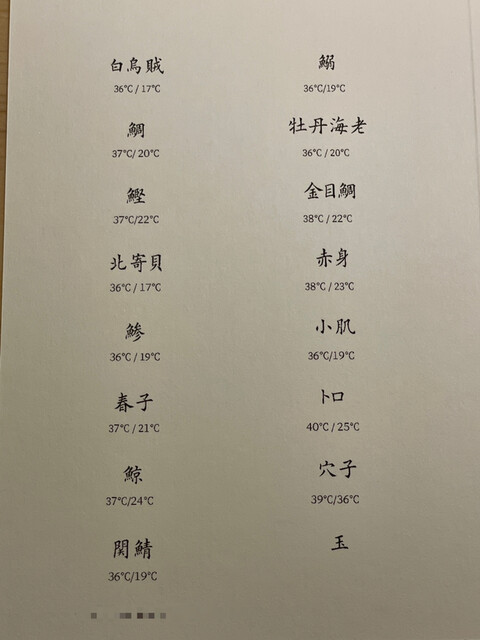 白烏賊
36℃ / 17℃
鯛
37℃/ 20℃
鰹
37℃/22℃
北寄貝
36℃ / 17℃
鯵
36℃ / 19℃
春子
37℃ / 21℃
鯨
37℃/24℃
関鯖
36℃/19℃
鰯
36℃/19℃
牡丹海老
36℃ / 20℃
金目鯛
38℃ / 22℃
赤身
38℃ / 23℃
小肌
36℃/19℃
トロ
40℃ / 25℃
穴子
39℃/36℃
玉